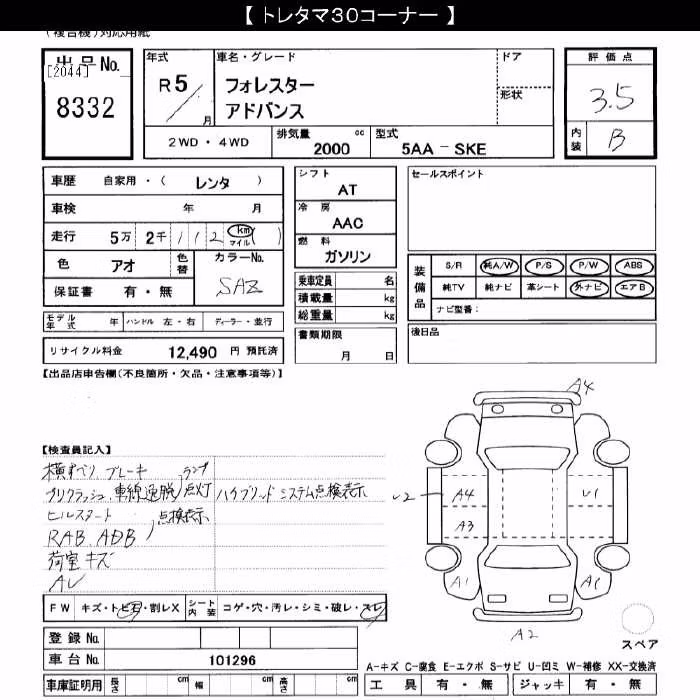 【 トレタマ30コーナー 】
(複合機)対応用紙
出品No.
[2044]
8332
年式
R 5
月
車名・グレード
フォレスター
アドバンス
ドア
形状
評価点
3.5
内装
B
2WD・4WD
排気量 cc
2000
型式
5AA－SKE
車歴 自家用・( レンタ )
車検 年 月
走行 5万 2千 1 1 2 km マイル ( )
色 アオ
色替
カラーNo.
SAZ
保証書 有・無
モデル年式 年 ハンドル 左・右 ディーラー・並行
リサイクル料金 12,490 円 預託済
シフト
AT
冷房
AAC
燃料
ガソリン
乗車定員 名
積載量 kg
総重量 kg
書類期限
月 日
セールスポイント
装備品
S/R 純A/W P/S P/W ABS
純TV 純ナビ 革シート 外ナビ エアB
ナビ型番:
後日品
【出品店申告欄(不良箇所・欠品・注意事項等)】
【検査員記入】
横すべり ブレーキ ランプ
プリクラッシュ、車線逸脱 点灯 ハイブリッドシステム点検表示
ヒルスタート 点検表示
RAB、ADB
荷室キズ
A4
U2
A4
U1
A3
A1
A2
FW キズ・トビ石・割レX
シート内装 コゲ・穴・汚レ・シミ・破レ・スレ
登録No.
車台No. 101296
車庫証明用 長さ cm 幅 cm 高さ cm
スペア
A-キズ C-腐食 E-エクボ S-サビ U-凹ミ W-補修 XX-交換済
工具 有・無 ジャッキ 有・無